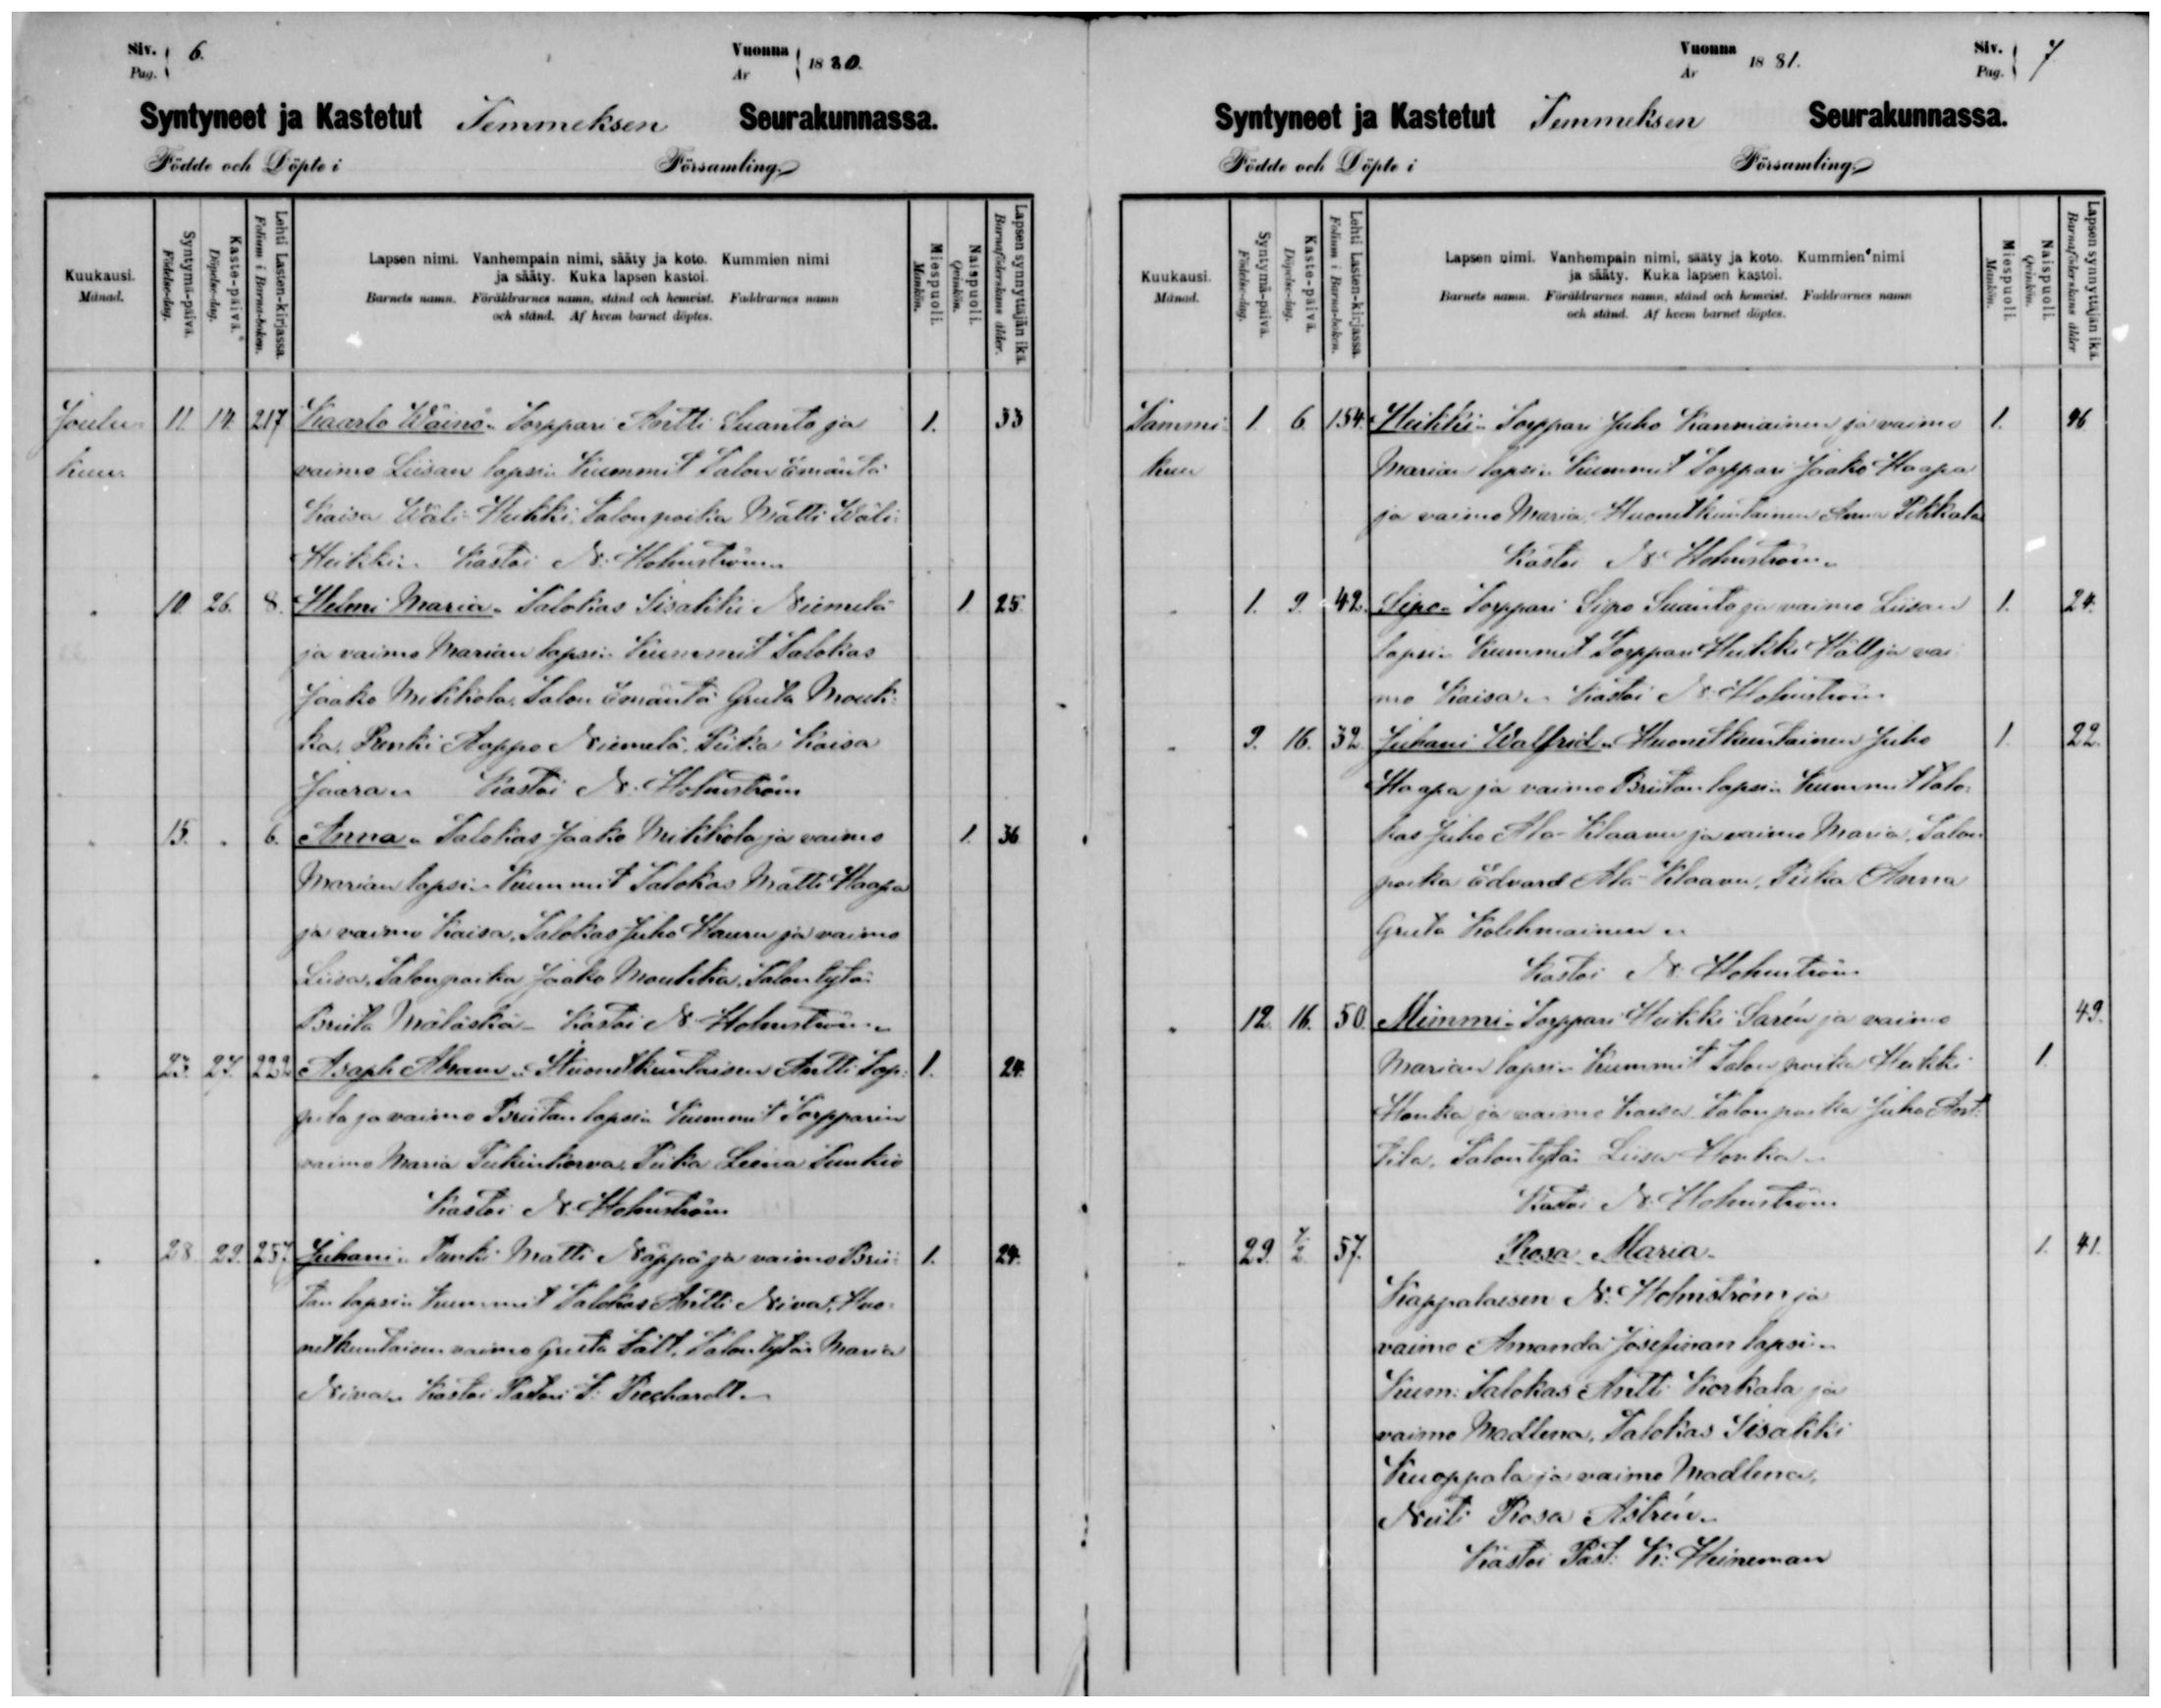 Siv. 6.
Pag.
Vuonna 1880.
År
Syntyneet ja Kastetut Temmeksen Seurakunnassa.
Födde och Döpte i Församling
Kuukausi.
Månad.
Syntymä-päivä.
Födelse-dag.
Kaste-päivä.
Döpelse-dag.
Lehti Lasten-kirjassa.
Folium i Barna-boken.
Lapsen nimi. Vanhempain nimi, sääty ja koto. Kummien nimi
ja sääty. Kuka lapsen kastoi.
Barnets namn. Föräldrarnes namn, stånd och hemvist. Faddrarnes namn
och stånd. Af hvem barnet döptes.
Miespuoli.
Mankön.
Naispuoli.
Qvinkön.
Lapsen synnyttäjän ikä.
Barnaföderskans ålder.
Joulu- 11. 14. 217 Kaarlo Wäinö. Torppari Antti Suanto ja 1. 33
kuu. vaimo Liisan lapsi. Kummit Talon Emäntä
Kaisa Wäli-Heikki. Talon poika Matti Wäli-
Heikki. Kastoi N. Holmström
10 26. 8. Helmi Maria. Talokas Iisakki Niemelä 1. 25.
ja vaimo Marian lapsi. Kummit Talokas
Jaako Mikkola. Talon Emäntä Greta Mouk-
ka, Renki Aappo Niemelä, Piika Kaisa
Jaara Kastoi N. Holmström
15. 6. Anna. Talokas Jaako Mikkola ja vaimo 1. 36
Marian lapsi. Kummit Talokas Matti Haapa
ja vaimo Kaisa, Talokas Juho Hauru ja vaimo
Liisa, Talonpoika Jaako Moukka, Talon tytär
Briita Määskä Kastoi N. Holmström
23. 27. 222 Asaph Abram. Huonetkuntaisen Antti Top- 1. 24.
pila ja vaimo Briitan lapsi. Kummit Torpparin
vaimo Maria Piika Leena
Kastoi N. Holmström
28. 29. 257 Juhani. Renki Matti Näppä ja vaimo Brii- 1. 24.
tan lapsi. Kummit Talokas Antti Niva, Huo-
netkuntaisen vaimo Greta Fält, Talon tytär Maria
Niva. Kastoi Pastori
Vuonna 1881.
År
Siv. 7
Pag.
Syntyneet ja Kastetut Temmeksen Seurakunnassa.
Födde och Döpte i Församling
Kuukausi.
Månad.
Syntymä-päivä.
Födelse-dag.
Kaste-päivä.
Döpelse-dag.
Lehti Lasten-kirjassa.
Folium i Barna-boken.
Lapsen nimi. Vanhempain nimi, sääty ja koto. Kummien nimi
ja sääty. Kuka lapsen kastoi.
Barnets namn. Föräldrarnes namn, stånd och hemvist. Faddrarnes namn
och stånd. Af hvem barnet döptes.
Miespuoli.
Mankön.
Naispuoli.
Qvinkön.
Lapsen synnyttäjän ikä.
Barnaföderskans ålder
Tammi- 1 6 154. Heikki. Torppari Juho Kanniainen ja vaimo 1. 46
kuu Marian lapsi. Kummit Torppari Jaako Haapa
ja vaimo Maria. Huonetkuntainen Anna Pekkala
Kastoi N. Holmström
1. 9. 42. Sipo. Torppari Sipo Suanto ja vaimo Liisan 1. 24.
lapsi. Kummit Torppari Heikki Häll ja vai-
mo Kaisa. Kastoi N. Holmström
9. 16. 32. Juhani Walfrid. Huonetkuntainen Juho 1. 22.
Haapa ja vaimo Briitan lapsi. Kummit Talo-
kas Juho Ala-Klaavu ja vaimo Maria, Talon
poika Edvard Ala-Klaavu, Piika Anna
Greta Kolehmainen
Kastoi N. Holmström
12. 16. 50 Mimmi. Torppari Heikki Sarén ja vaimo 49.
Marian lapsi. Kummit Talon poika Heikki 1.
Honka ja vaimo Kaisa. Talon poika Juho Ant-
tila, Talon tytär Liisa Honka
Kastoi N. Holmström
29. 7/2. 57. Rosa Maria. 1. 41.
Kappalaisen N. Holmström ja
vaimo Amanda Josefinan lapsi.
Kum: Talokas Antti Korkala ja
vaimo Madlena, Talokas Iisakki
Kuoppala ja vaimo Madlena,
Neiti Rosa Astrén.
Kastoi Past: K: Heineman